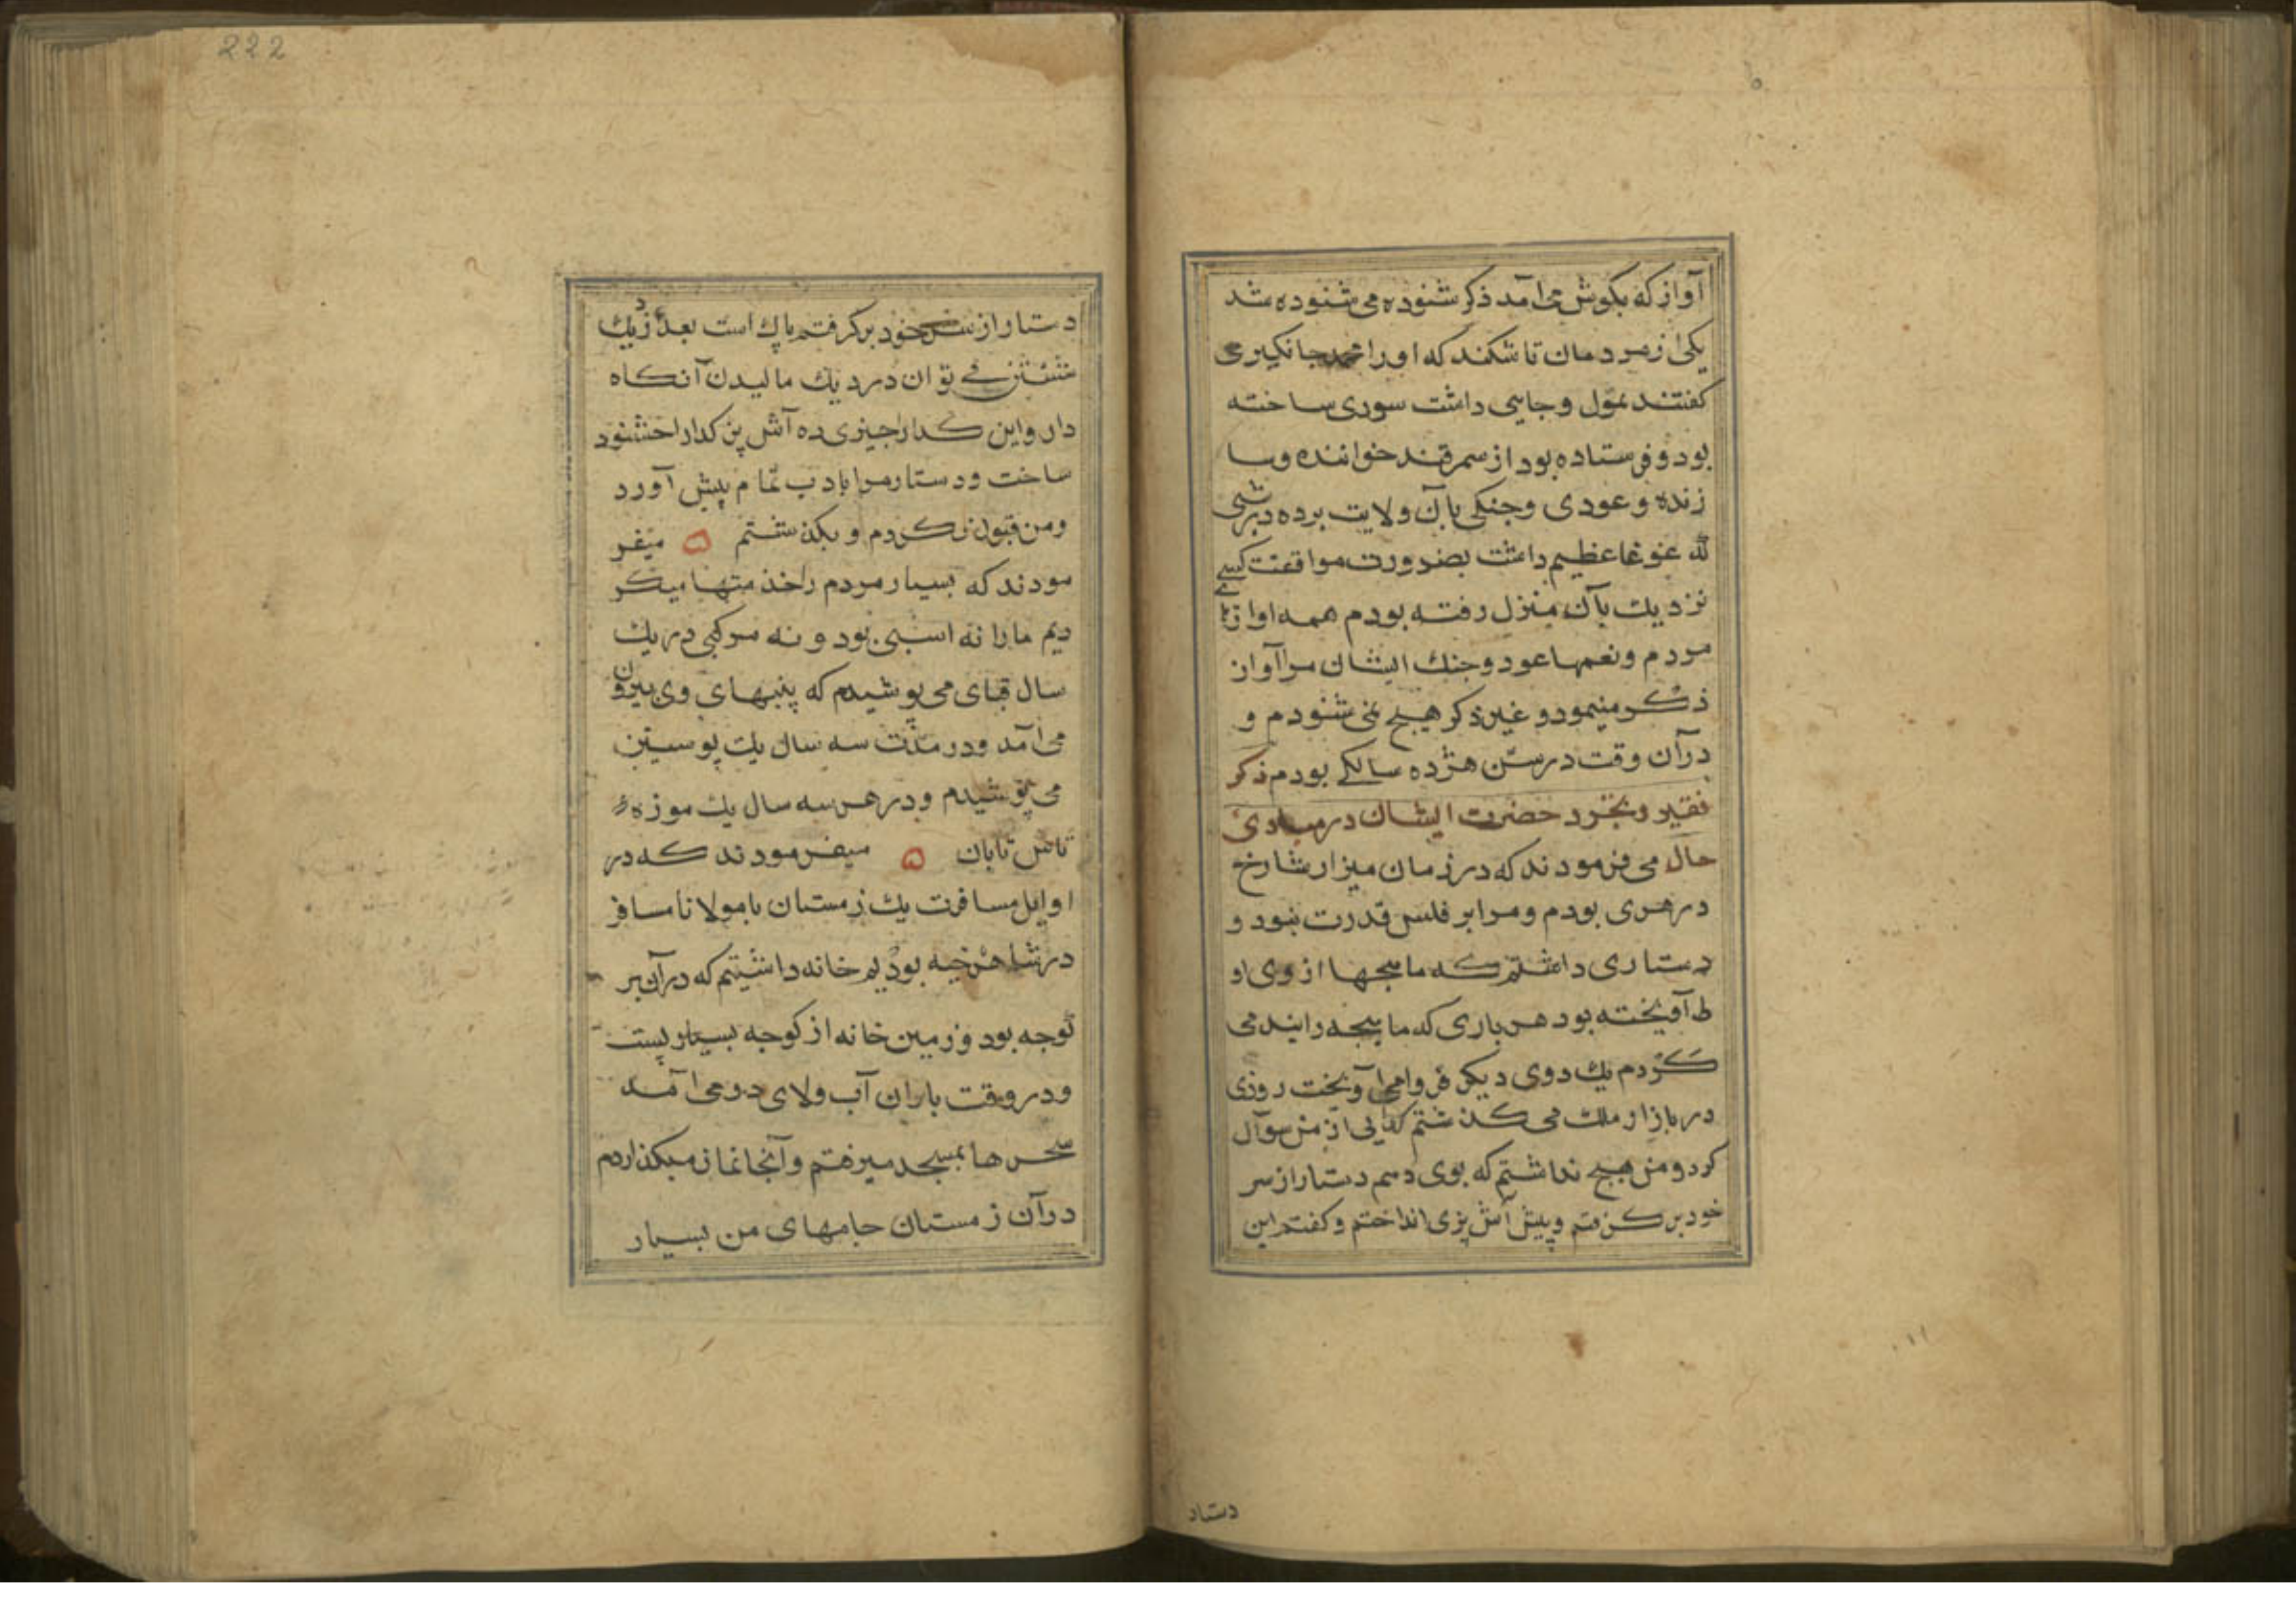 آواز که بگوش می‌آمد ذکر شنوده می‌شنوده شد
یکی از مردمان تاشکند که او را محمد جانکیری
کفتند عول و جاهی داشت سوری ساخته
بود و فرستاده بود از سمرقند خواننده و سا
زنده و عودی و جنکی بآن ولایت برده درشبی
لله غوغا عظیم داشت بضرورت موافقت کسے
نزدیك بآن منزل رفته بودم همه اوازها
مردم و نغمها عود و جنك ایشان مرا آواز
ذکر مینمود و غیر ذکر هیچ نمی شنودم و
درآن وقت در سن هژده سالکی بودم ذکر
فقیر و تجرد حضرت ایشان در مبادی
حال می فرمودند که در زمان میزار شارخ
در هری بودم و مرا بر فلس قدرت نبود و
دستاری داشتم که مابجها از وی او
ط آویخته بود هر باری که مابجه را بند می
کردم یك دوی دیکر فروامی آویخت روزی
در بازار ملك می کذشتم کدایی از من سوآل
کرد و من هیچ نداشتم که بوی دهم دستار از سر
خود برکرفتم و پیش آش پزی انداختم و کفتم این
دستار
222
دستار از سر خود برکرفتم پاك است بعد از دیك
شستن می توان در دیك مالیدن آنکاه
دار و این کدا را چیزی ده آش پز کدا را خشنود
ساخت و دستار مرا بادب تمام پیش آورد
و من قبول نکردم و بکذشتم ۵ میفر
مودند که بسیار مردم را خذمتها میکر
دیم ما را نه اسبی بود و نه مرکبی در یك
سال قبای می پوشیدم که پنبهای وی بیرون
می‌آمد و در مدت سه سال یك پوستین
می پوشیدم و در هر سه سال یك موزه
تاش تابان ۵ میفرمودند که در
اوایل مسافرت یك زمستان با مولانا مسافر
در شاهرخیه بودیم خانه داشتیم که درآن بر
کوجه بود و زمین خانه از کوجه بسیار پست
و در وقت باران آب و لای در و می‌آمد
سحرها بمسجد میرفتم و آنجا نماز میکذاردم
درآن زمستان جامهای من بسیار